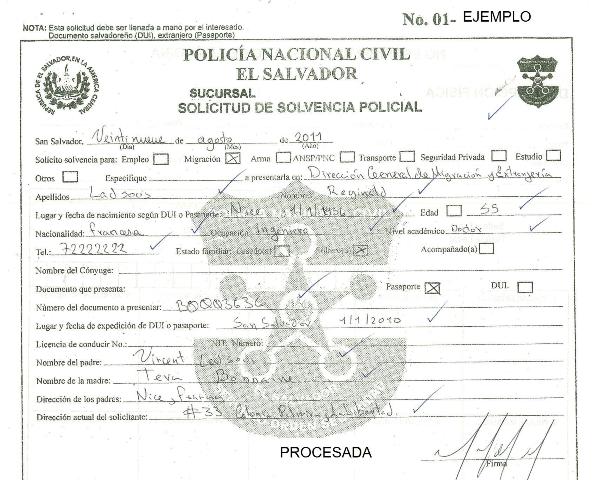 No. 01- EJEMPLO
NOTA: Esta solicitud debe ser llenada a mano por el interesado.
Documento salvadoreño (DUI), extranjero (Pasaporte)
POLICÍA NACIONAL CIVIL
EL SALVADOR
SUCURSAL
SOLICITUD DE SOLVENCIA POLICIAL
REPUBLICA DE EL SALVADOR EN LA AMERICA CENTRAL
San Salvador, Veintinueve de agosto de 2011
(Día) (Mes) (Año)
Solicito solvencia para: Empleo Migración X Arma ANSP/PNC Transporte Seguridad Privada Estudio
Otros Especifique a presentarla en: Dirección General de Migración y Extranjería
Apellidos Ladsous Nombre Reginald
Lugar y fecha de nacimiento según DUI o Pasaporte: Nice 1/1/1956 Edad 55
Nacionalidad: francesa Ocupación Ingeniero Nivel académico: Doctor
Tel.: 72222222 Estado familiar: Casado(a) X Acompañado(a)
Nombre del Cónyuge:
Documento que presenta: Pasaporte X DUI.
Número del documento a presentar: B0003636
Lugar y fecha de expedición de DUI o pasaporte: San Salvador 1/1/2010
Licencia de conducir No.: NIT. Número:
Nombre del padre: Vincent
Nombre de la madre:
Dirección de los padres: Nice, Francia
Dirección actual del solicitante: #33 Colonia La Libertad
PROCESADA
Firma